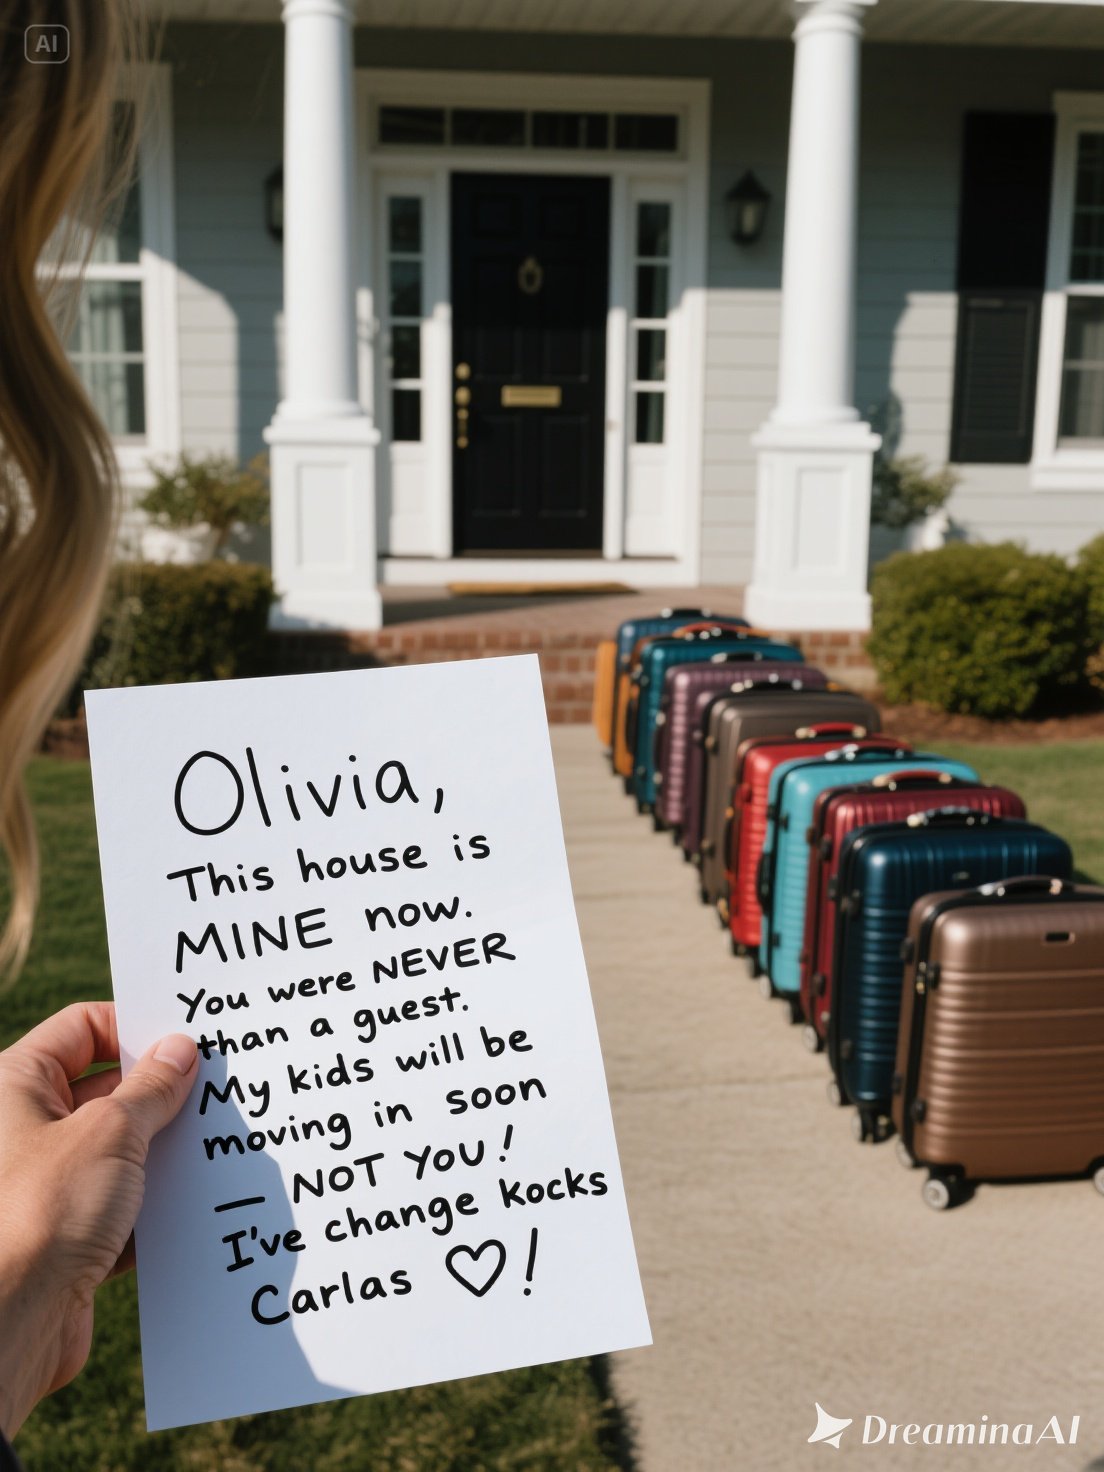 AI
Olivia,
This house is
MINE now.
You were NEVER
than a guest.
My kids will be
moving in soon
— NOT YOU!
I've change kocks
Carlas ♡!
DreaminaAI